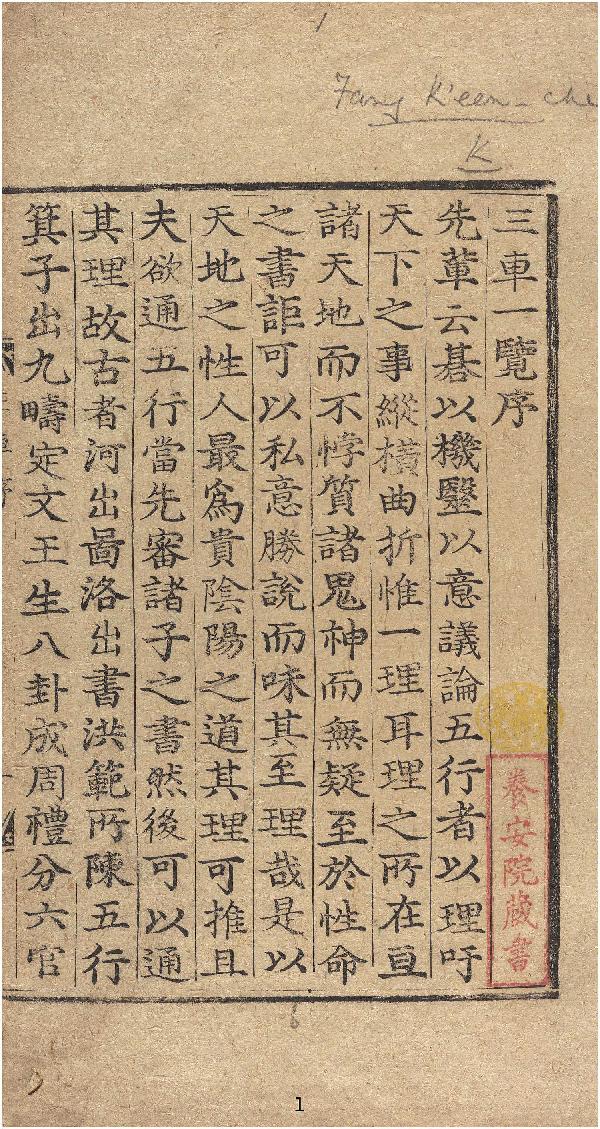 1
Fang K'een-che
K
三車一覽序
先軰云碁以機毉以意議論五行者以理吁
天下之事縱横曲折惟一理耳理之所在亘
諸天地而不悖質諸鬼神而無疑至於性命
之書詎可以私意勝說而味其至理哉是以
天地之性人最爲貴陰陽之道其理可推且
夫欲通五行當先審諸子之書然後可以通
其理故古者河出啚洛出書洪範所陳五行
箕子出九疇定文王生八卦成周禮分六官
養安院蔵書
6
1